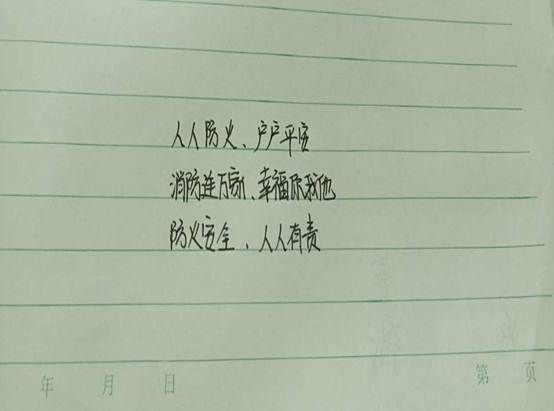 人人防火、户户平安
消防连万家、幸福你我他
防火安全、人人有责
年 月 日 第 页